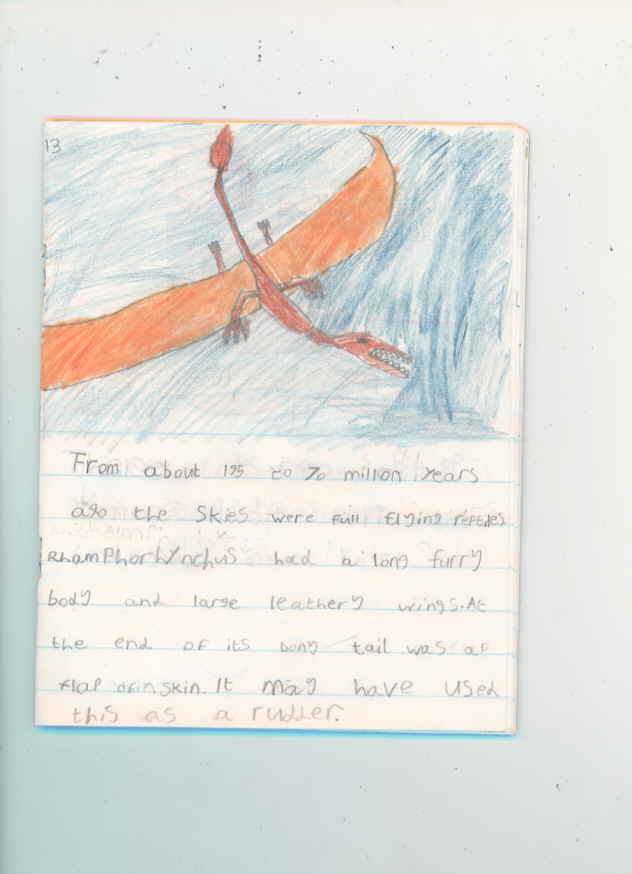 13
From about 195 to 70 millon years
ago the skies were full flying reptiles
Rhamphorhynchus had a long furry
body and large leathery wings. At
the end of its bony tail was a
flap skin. It may have used
this as a rudder.